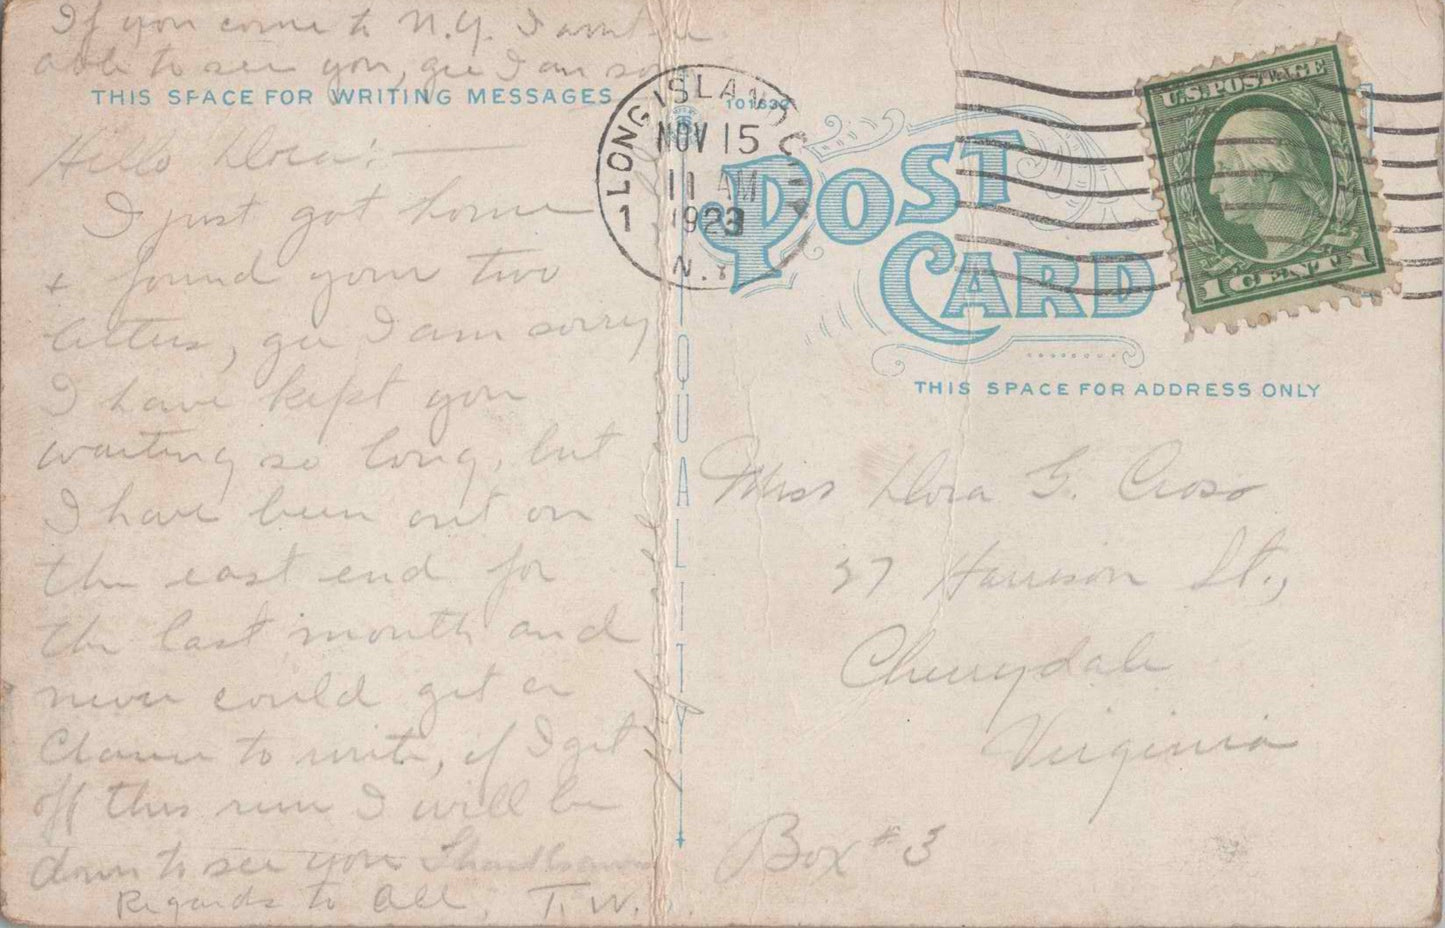 If you come to N.Y. I
able to see you, gee I am so
THIS SPACE FOR WRITING MESSAGES
Hello Dora:
I just got home
+ found your two
letters, gee I am sorry
I have kept you
waiting so long, but
I have been out on
the east end for
the last month and
never could get a
Chance to write, if I get
off this run I will be
down to see you
Regards to All, T.W.
LONG ISLAND CITY
1
NOV 15
11 AM
1923
N.Y.
101632
POST
CARD
U.S. POSTAGE
1 CENT 1
QUALITY
THIS SPACE FOR ADDRESS ONLY
Miss Dora G. Cross
37 Harrison St.,
Cherrydale
Virginia
Box #3